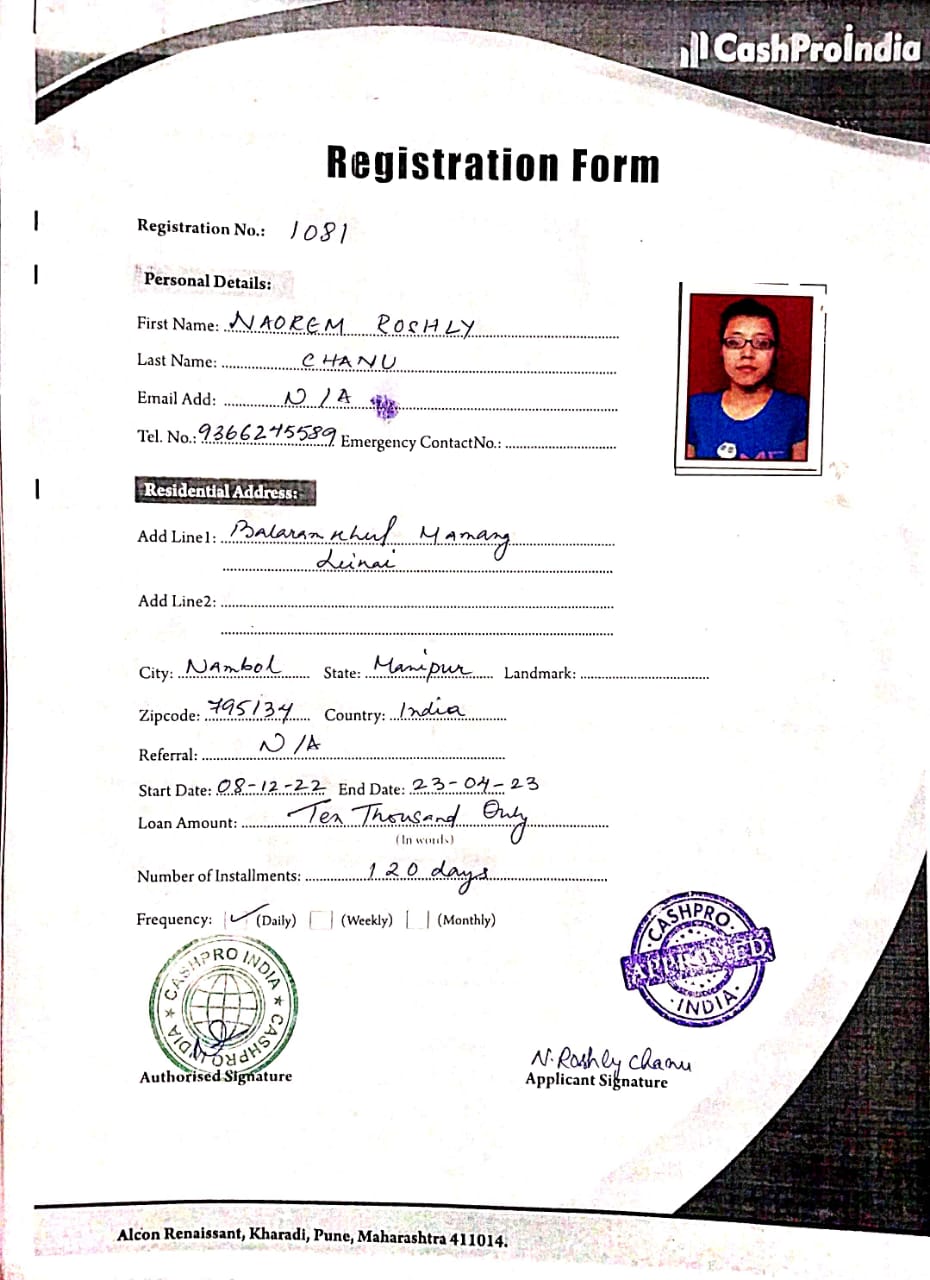 CashProIndia
Registration Form
Registration No.: 1081
Personal Details:
First Name: NAOREM ROSHLY
Last Name: CHANU
Email Add: N/A
Tel. No.: 9366245589 Emergency ContactNo.:
Residential Address:
Add Line1: Balaram khul Mamang
Leinai
Add Line2:
City: Nambol State: Manipur Landmark:
Zipcode: 795134 Country: India
Referral: N/A
Start Date: 08-12-22 End Date: 23-04-23
Loan Amount: Ten Thousand Only
(In words)
Number of Installments: 120 days
Frequency: (Daily) (Weekly) (Monthly)
CASHPRO INDIA CASHPRO INDIA
CASHPRO
APPROVED
INDIA
N. Roshly Chanu
Authorised Signature Applicant Signature
Alcon Renaissant, Kharadi, Pune, Maharashtra 411014.